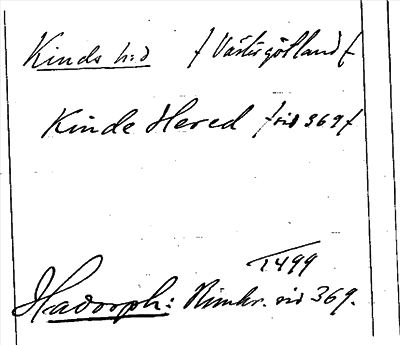 Kinds h:d /Västergötland/
Kinde Hered /sid 369/
1499
Hadorph: Rimkr. sid 369.